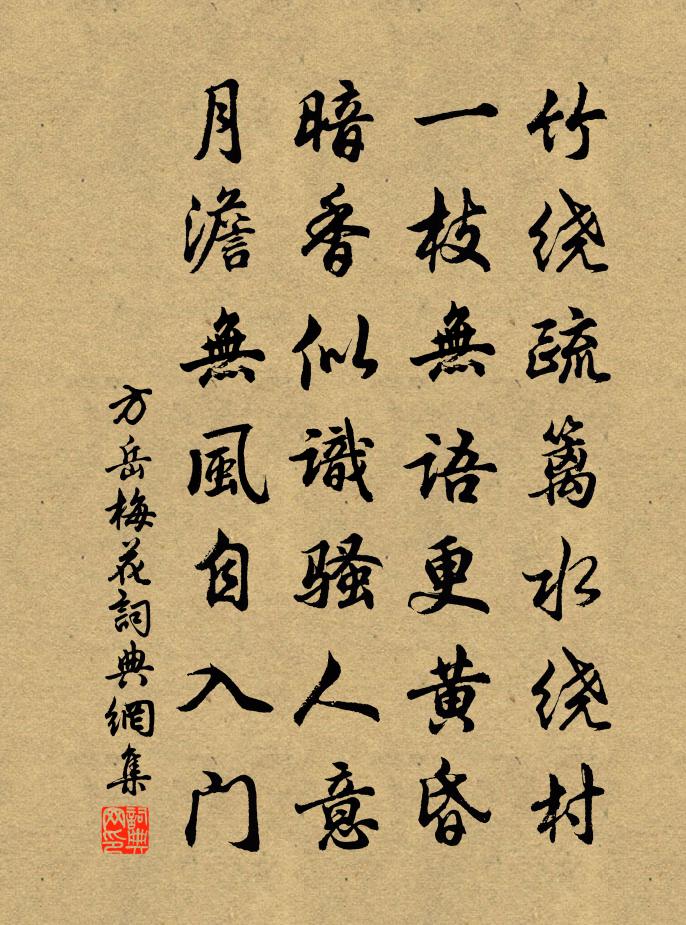 竹绕疏篱水绕村
一枝無语更黄昏
暗香似識骚人意
月澹無風自入门
方岳梅花詞典網集
詞典网印